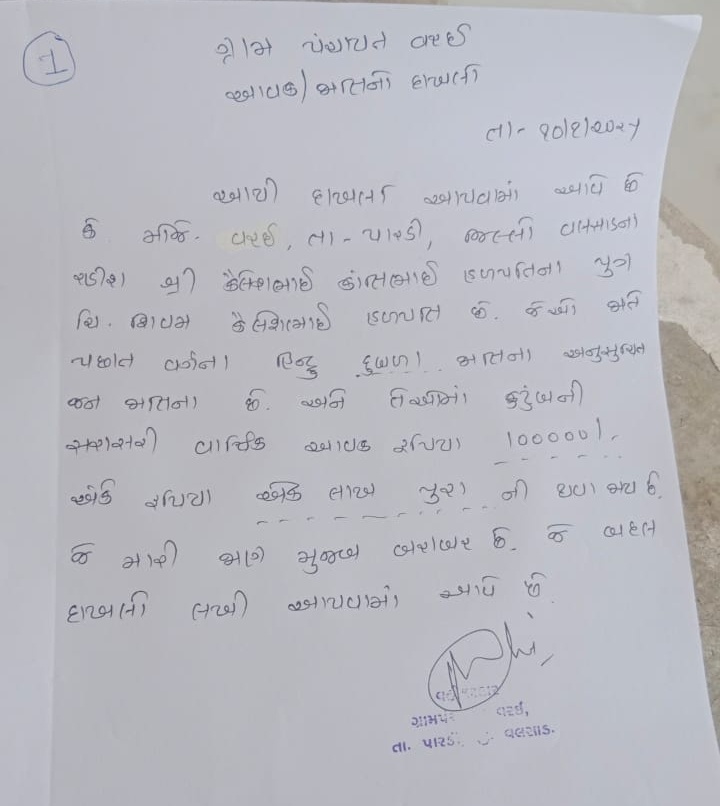 1
ગ્રામ પંચાયત વરઈ
આવક/જાતિનો દાખલો
તા- ૧૦/૧/૨૦૨૫
આથી દાખલો આપવામાં આવે છે
કે મોજે. વરઈ, તા- પારડી, જિલ્લો વલસાડના
રહીશ શ્રી કૈલેશભાઈ કાંતિભાઈ હળપતિના પુત્ર
ચિ. શિવમ કૈલેશભાઈ હળપતિ છે. જેઓ જાતે
પછાત વર્ગના હિન્દુ દુબળા જાતિના અનુસુચિત
જન જાતિના છે. અને તેઓના કુટુંબની
સરાસરી વાર્ષિક આવક રૂપિયા 100000/-
અંકે રૂપિયા એક લાખ પુરા ની થવા જાય છે.
જે મારી જાણ મુજબ બરાબર છે. જે બદલ
દાખલો લખી આપવામાં આવે છે.
ગ્રામપં વરઈ,
તા. પારડી વલસાડ.